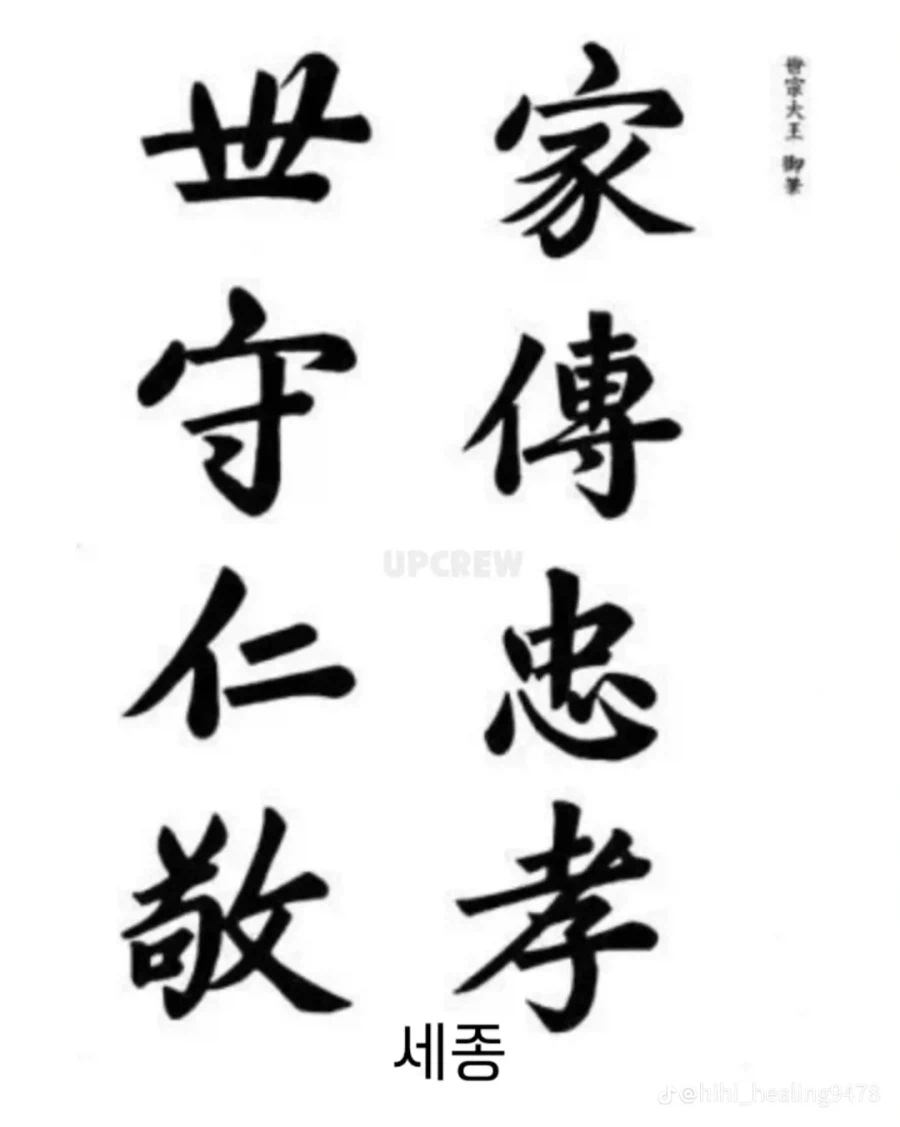 世宗大王 御筆
家傳忠孝
世守仁敬
UPCREW
세종
@hihi_healing9478